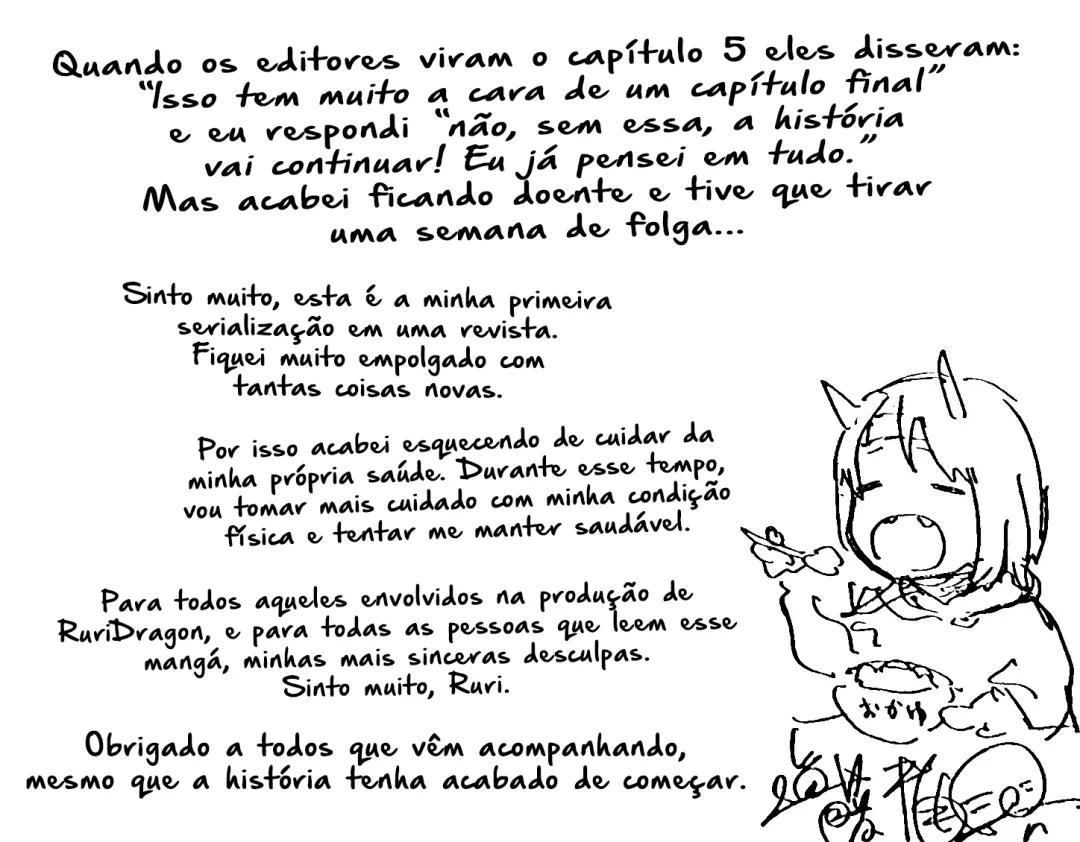 Quando os editores viram o capítulo 5 eles disseram:
"Isso tem muito a cara de um capítulo final"
e eu respondi "não, sem essa, a história
vai continuar! Eu já pensei em tudo."
Mas acabei ficando doente e tive que tirar
uma semana de folga...
Sinto muito, esta é a minha primeira
serialização em uma revista.
Fiquei muito empolgado com
tantas coisas novas.
Por isso acabei esquecendo de cuidar da
minha própria saúde. Durante esse tempo,
vou tomar mais cuidado com minha condição
física e tentar me manter saudável.
Para todos aqueles envolvidos na produção de
RuriDragon, e para todas as pessoas que leem esse
mangá, minhas mais sinceras desculpas.
Sinto muito, Ruri.
Obrigado a todos que vêm acompanhando,
mesmo que a história tenha acabado de começar.
おかゆ